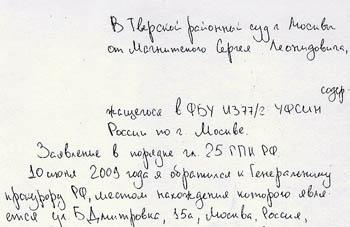 В Тверской районный суд г Москвы
от Магнитского Сергея Леонидовича,
содер-
жащегося в ФБУ ИЗ77/2 УФСИН
России по г. Москве.
Заявление в порядке гл. 25 ГПК РФ
10 июня 2009 года я обратился к Генеральному
прокурору РФ, местом нахождения которого явля-
ется ул Б.Дмитровка, 15а, Москва, Россия,